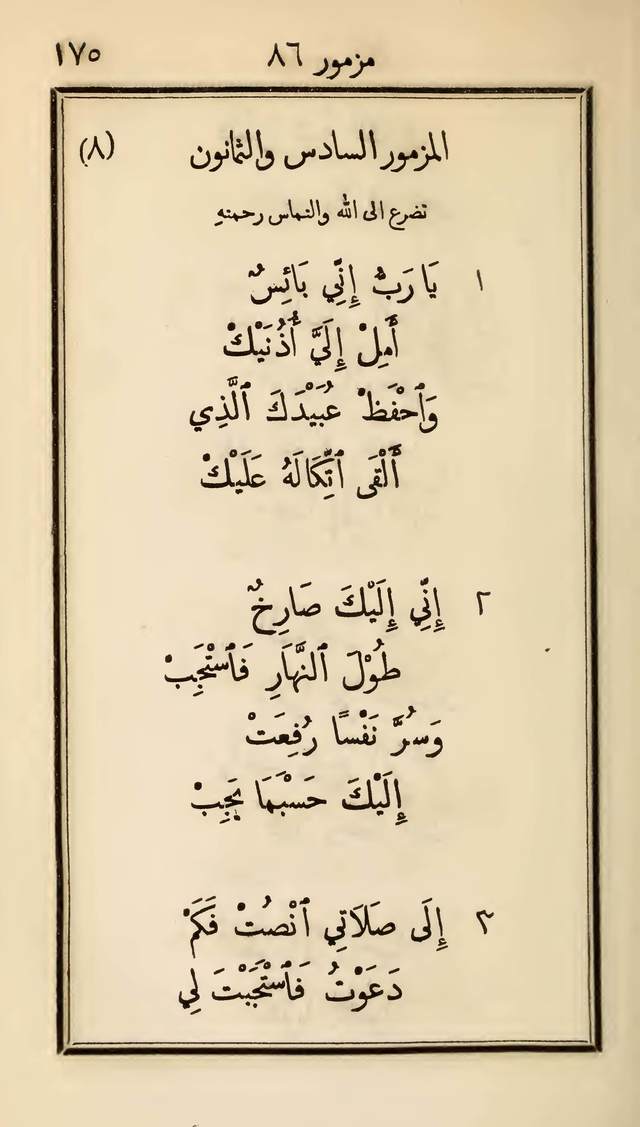 مزمور ٨٦ ١٧٥
المزمور السادس والثمانون (٨)
تضرع الى الله والتماس رحمتهِ
١ يَا رَبُّ إِنِّي بَائِسٌ
أَمِلْ إِلَيَّ أُذُنَيْكْ
وَٱحْفَظْ عُبَيْدَكَ ٱلَّذِي
أَلْقَى ٱتِّكَالَهُ عَلَيْكْ
٢ إِنِّي إِلَيْكَ صَارِخٌ
طُوْلَ ٱلنَّهَارِ فَٱسْتَجِبْ
وَسُرَّ نَفْسًا رُفِعَتْ
إِلَيْكَ حَسْبَمَا يَجِبْ
٣ إِلَى صَلَاتِي ٱنْصُتْ فَكَمْ
دَعَوْتُ فَٱسْتَجَبْتَ لِي